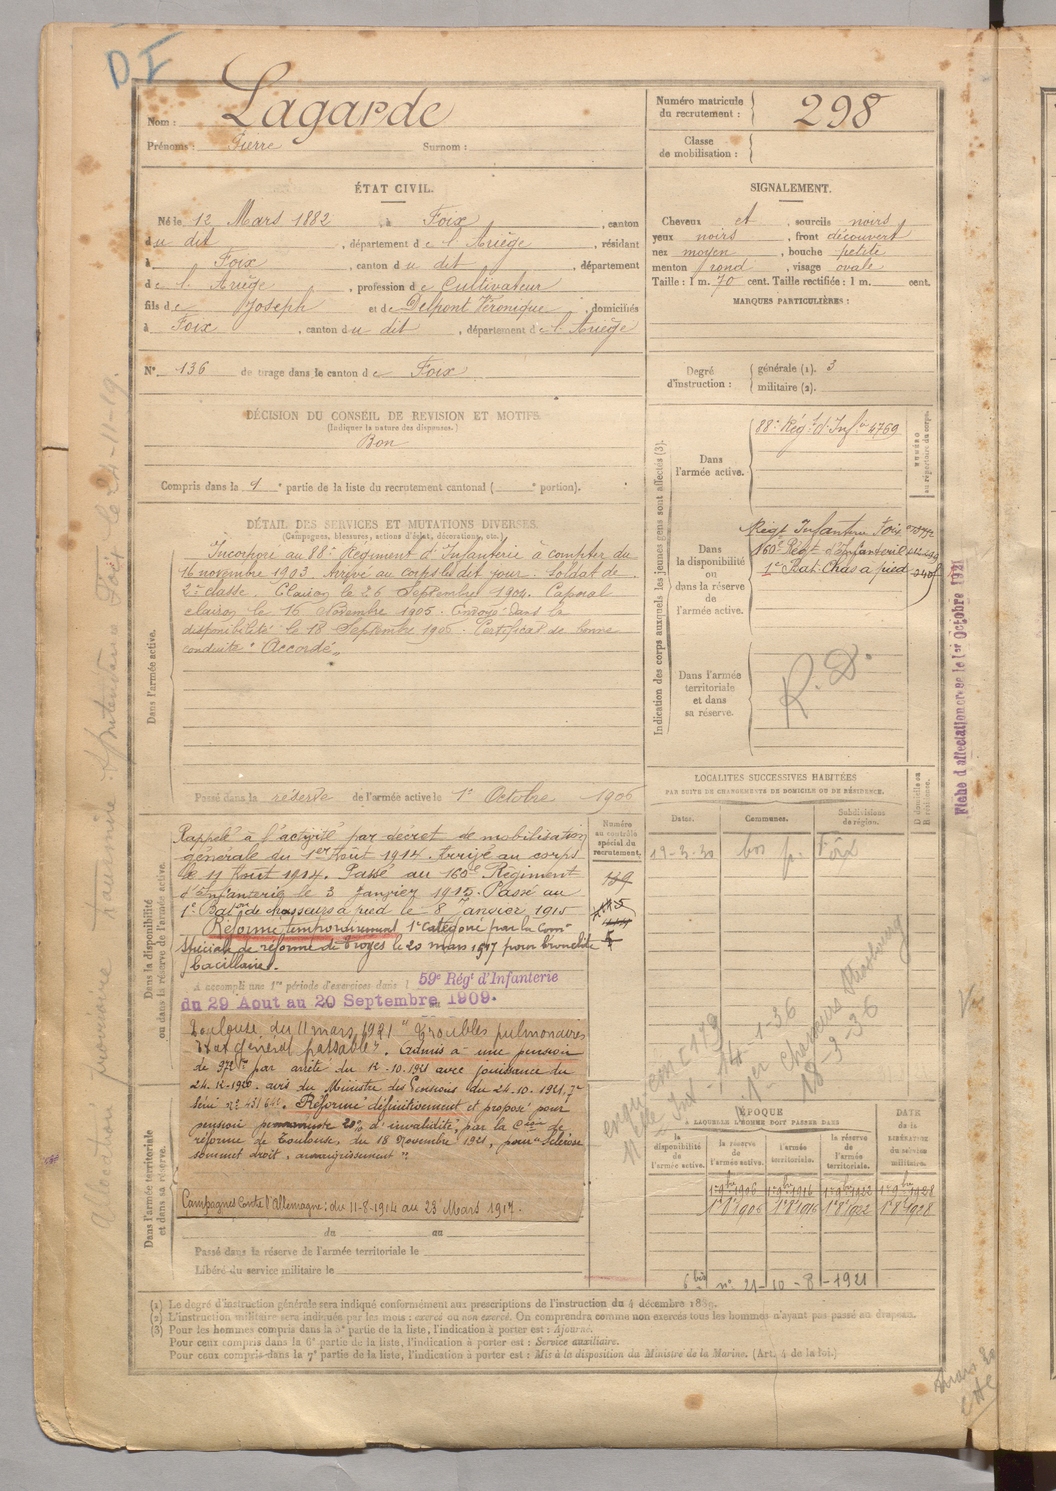 DI
Nom : Lagarde
Prénoms : Pierre Surnom :
Numéro matricule du recrutement : 298
Classe de mobilisation :
ÉTAT CIVIL.
Né le 12 Mars 1882 à Foix, canton
du dit, département de l'Ariège, résidant
à Foix, canton du dit, département
de l'Ariège, profession de Cultivateur
fils de Joseph et de Delpont Véronique, domiciliés
à Foix, canton du dit, département de l'Ariège
N° 136 de tirage dans le canton de Foix
SIGNALEMENT.
Cheveux et, sourcils noirs
yeux noirs, front découvert
nez moyen, bouche petite
menton rond, visage ovale
Taille : 1 m. 70 cent. Taille rectifiée : 1 m. cent.
MARQUES PARTICULIÈRES :
Degré d'instruction : générale (1). 3
militaire (2).
DÉCISION DU CONSEIL DE REVISION ET MOTIFS.
(Indiquer la nature des dispenses.)
Bon
Compris dans la 1e partie de la liste du recrutement cantonal ( e portion).
DÉTAIL DES SERVICES ET MUTATIONS DIVERSES.
(Campagnes, blessures, actions d'éclat, décorations, etc.)
Dans l'armée active.
Incorporé au 88e Régiment d'Infanterie à compter du
16 novembre 1903. Arrivé au corps le dit jour. Soldat de
2e classe. Clairon le 26 Septembre 1904. Caporal
clairon le 16 Novembre 1905. Envoyé dans la
disponibilité le 18 Septembre 1906. Certificat de bonne
conduite "Accordé".
Passé dans la réserve de l'armée active le 1er Octobre 1906
Indication des corps auxquels les jeunes gens sont affectés (3).
NUMÉRO au répertoire du corps.
Dans l'armée active.
88e Rég.t d'Inf.ie 4769
Dans la disponibilité ou dans la réserve de l'armée active.
Régt Infanterie Foix
160e Régt d'Infanterie
1er Bat. Chas à pied
Dans l'armée territoriale et dans sa réserve.
R.D.
Fiche d'affectation créée le 1er Octobre 1921
LOCALITÉS SUCCESSIVES HABITÉES
PAR SUITE DE CHANGEMENTS DE DOMICILE OU DE RÉSIDENCE.
Dates. Communes. Subdivisions de région. D domicile ou R résidence.
Foix
Dans la disponibilité ou dans la réserve de l'armée active.
Numéro au contrôle spécial du recrutement.
Rappelé à l'activité par décret de mobilisation
générale du 1er Août 1914. Arrivé au corps
le 11 Août 1914. Passé au 160e Régiment
d'Infanterie le 3 Janvier 1915. Passé au
1er Baton de chasseurs à pied le 8 Janvier 1915
Réformé temporairement 1e catégorie par la Comon
Spéciale de réforme de Troyes le 20 mars 1917 pour bronchite
bacillaire.
A accompli une 1re période d'exercices dans l 59e Régt d'Infanterie
du 29 Aout au 20 Septembre 1909.
Toulouse, du 11 mars 1921 "Troubles pulmonaires
Etat général passable". Admis à une pension
de 972 f par arrêté du 12-10-1921 avec jouissance du
avis du Ministre des Pensions du 24.10.1921,
Réformé définitivement et proposé pour
pension permanente 20% d'invalidité, par la Con de
réforme de Toulouse, du 18 Novembre 1921, pour "Sclérose
sommet droit, amaigrissement".
Campagnes Contre l'Allemagne : du 11-8-1914 au 23 Mars 1917.
Dans l'armée territoriale et dans sa réserve.
du au
Passé dans la réserve de l'armée territoriale le
Libéré du service militaire le
14-1-36
1er Chasseurs Strasbourg
18-3-36
ÉPOQUE
À LAQUELLE L'HOMME DOIT PASSER DANS
la disponibilité de l'armée active. la réserve de l'armée active. l'armée territoriale. la réserve de l'armée territoriale. DATE de la LIBÉRATION du service militaire.
1er 9bre 1906 1er 9bre 1916 1er 9bre 1922 1er 9bre 1928
1er 8bre 1906 1er 8bre 1916 1er 8bre 1922 1er 8bre 1928
6 bis n° 21-10-8-1921
(1) Le degré d'instruction générale sera indiqué conformément aux prescriptions de l'instruction du 4 décembre 1889.
(2) L'instruction militaire sera indiquée par les mots : exercé ou non exercé. On comprendra comme non exercés tous les hommes n'ayant pas passé au drapeau.
(3) Pour les hommes compris dans la 5e partie de la liste, l'indication à porter est : Ajourné.
Pour ceux compris dans la 6e partie de la liste, l'indication à porter est : Service auxiliaire.
Pour ceux compris dans la 7e partie de la liste, l'indication à porter est : Mis à la disposition du Ministre de la Marine. (Art. 4 de la loi.)